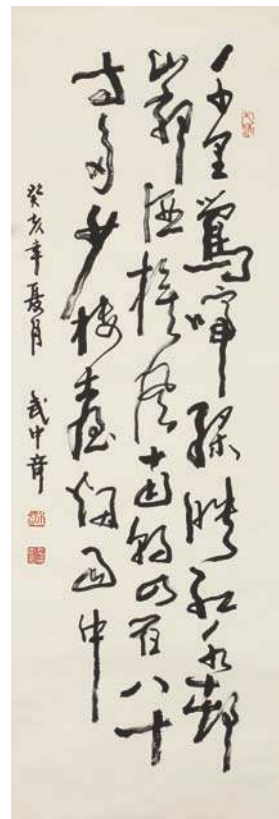 千里鶯啼綠映紅水邨
山郭酒旗風南朝四百八十
寺多少樓臺烟雨中
癸亥年夏月 武中奇